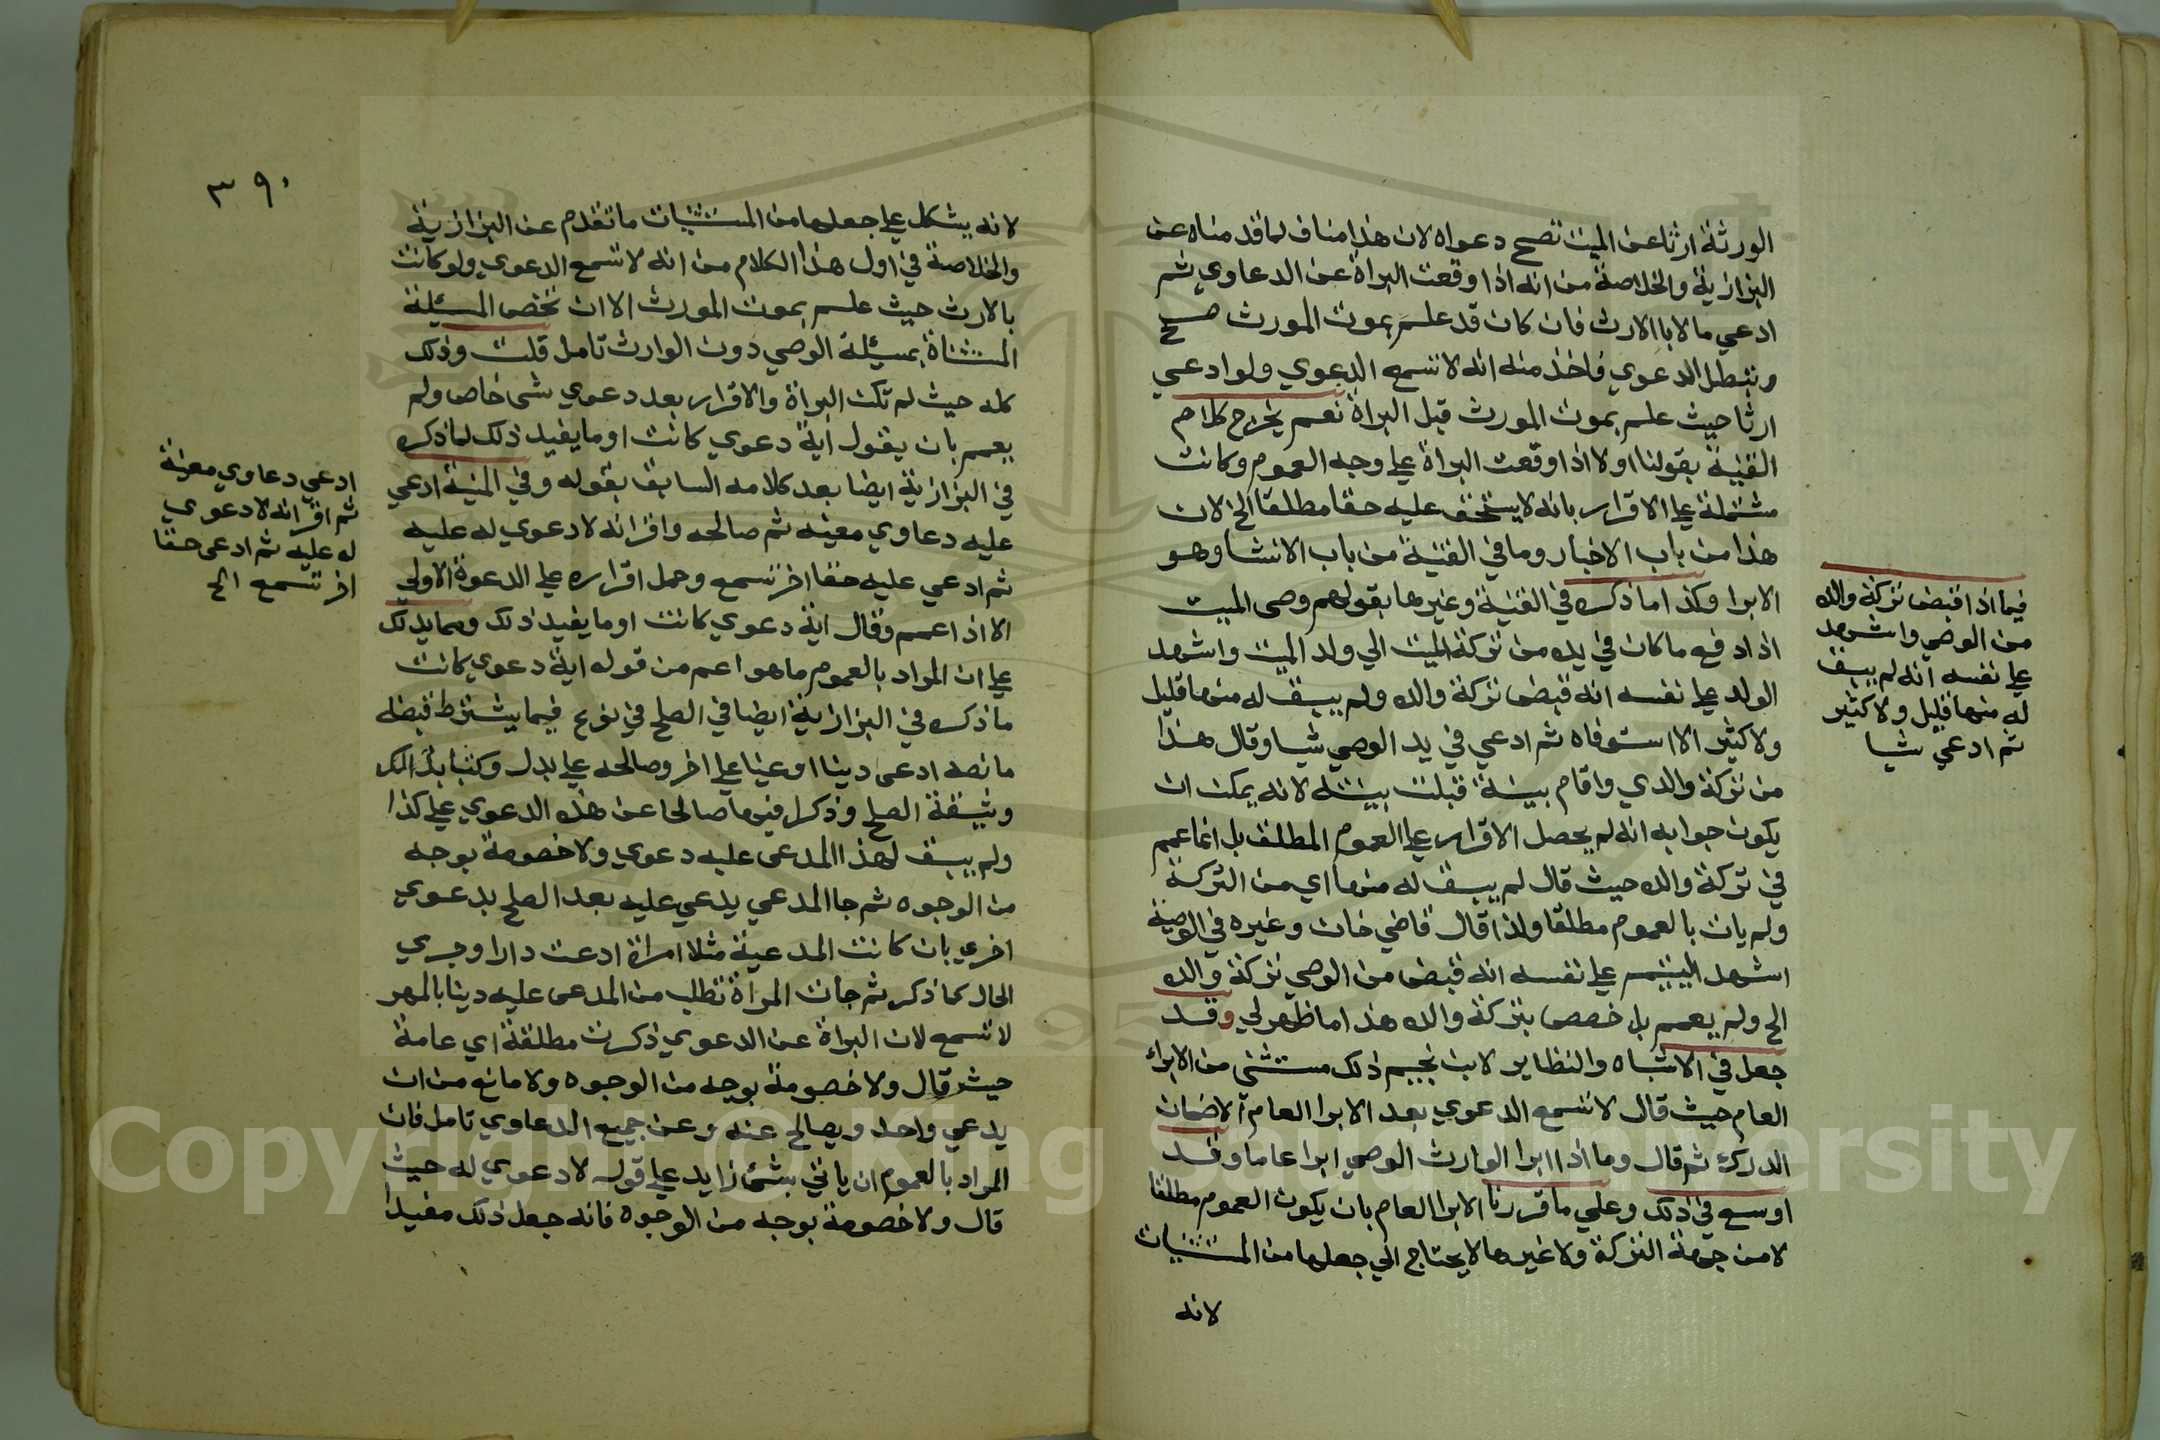 الورثة ارثا عن الميت تصح دعواه لان هذا مناف لما قدمناه عن
البزازية والخلاصة من انه اذا وقعت البراة عن الدعاوي ثم
ادعي مالا بالارث فان كان قد علم بموت المورث صح
وتبطل الدعوي فاخذ منه انه لا تسمع الدعوي ولو ادعي
ارثا حيث علم بموت المورث قبل البراة نعم يخرج كلام
القنية بقولنا اولا اذا وقعت البراة علي وجه العموم وكانت
مشتملة علي الاقرار بانه لا يستحق عليه حقا مطلقا الخ لان
هذا من باب الاخبار وما في القنية من باب الانشا وهو
الابرا وكذا ما ذكره في القنية وغيرها بقولهم وصى الميت
اذا دفع ما كان في يده من تركة الميت الي ولد الميت واشهد
الولد علي نفسه انه قبض تركة والده ولم يبق له منها قليل
ولا كثير الا استوفاه ثم ادعي في يد الوصي شيا وقال هذا
من تركة والدي واقام بينة قبلت بينته لانه يمكن ان
يكون جوابه انه لم يحصل الاقرار علي العموم المطلق بل انما عمم
في تركة والده حيث قال لم يبق له منها اي من التركة
ولم يات بالعموم مطلقا ولذا قال قاضي خان وغيره في الوصية
اشهد اليتيم علي نفسه انه قبض من الوصي تركة والده
الخ ولم يعمم بل خصص بتركة والده هذا ما ظهر لي وقد
جعل في الاشباه والنظاير لابن نجيم ذلك مستثنى من الابراء
العام حيث قال لا تسمع الدعوي بعد الابرا العام الا ضمان
الدرك ثم قال وما اذا ابرا الوارث الوصي ابرا عاما وقد
اوسع في ذلك وعلي ما قررنا الابرا العام بان يكون العموم مطلقا
لا من جهة التركة ولا غيرها لا يحتاج الي جعلها من المستثنيات
لانه
فيما اذا قبض تركة والده
من الوصي واشهد
علي نفسه انه لم يبق
له منها قليل ولا كثير
ثم ادعي شيا
٣٩٠
لانه يشكل علي جعلها من المستثنيات ما تقدم عن البزازية
والخلاصة في اول هذا الكلام من انه لا تسمع الدعوي ولو كانت
بالارث حيث علم بموت المورث الا ان تخص المسئلة
المستثناة بمسئلة الوصي دون الوارث تامل قلت وذلك
كله حيث لم تكن البراة والاقرار بعد دعوي شى خاص ولم
يعمم بان يقول اية دعوي كانت او ما يفيد ذلك لما ذكره
في البزازية ايضا بعد كلامه السابق بقوله وفي المنية ادعي
عليه دعاوي معينه ثم صالحه واقر انه لا دعوي له عليه
ثم ادعي عليه حقا اخر تسمع وحمل اقراره علي الدعوة الاولي
الا اذا عمم وقال اية دعوي كانت او ما يفيد ذلك ومما يدلك
علي ان المراد بالعموم ما هو اعم من قوله اية دعوي كانت
ما ذكره في البزازية ايضا في الصلح في نوع فيما يشترط قبضه
ما نصه ادعى دينا او عينا علي اخر وصالحه علي بدل وكتبا بذلك
وثيقة الصلح وذكرا فيها صالحا عن هذه الدعوي علي كذا
ولم يبق لهذا المدعى عليه دعوي ولا خصومة بوجه
من الوجوه ثم جا المدعي يدعي عليه بعد الصلح بدعوي
اخري بان كانت المدعية مثلا امراة ادعت دارا وجري
الحال كما ذكر ثم جأت المراة تطلب من المدعى عليه دينا بالمهر
لا تسمع لان البراة عن الدعوي ذكرت مطلقة اي عامة
حيث قال ولا خصومة بوجه من الوجوه ولا مانع من ان
يدعي واحد ويصالح عنه وعن جميع الدعاوي تامل فان
المراد بالعموم ان ياتي بشئ زايد علي قوله لا دعوي له حيث
قال ولا خصومة بوجه من الوجوه فانه جعل ذلك مفيدا
ادعي دعاوي معينة
ثم اقر انه لا دعوي
له عليه ثم ادعى حقا
اخر تسمع الخ
Copyright © King Saud University